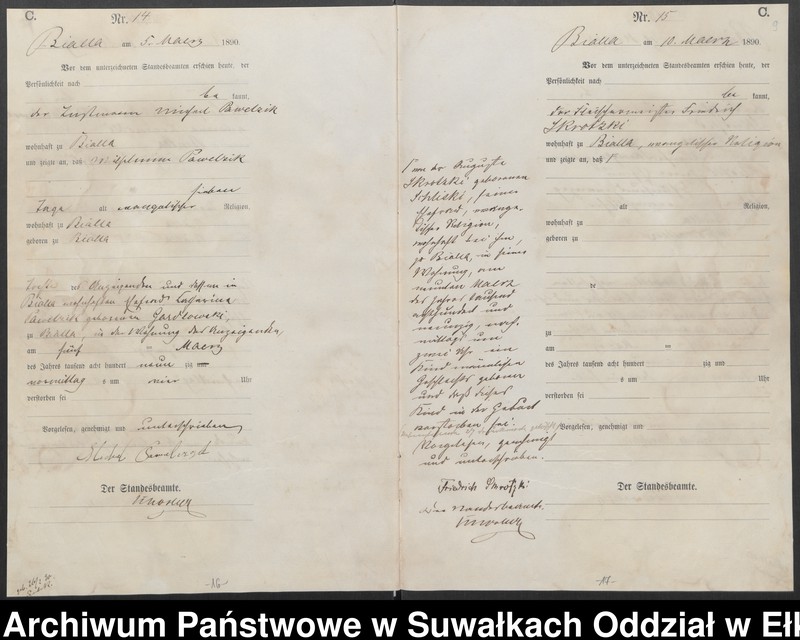 C.
Nr. 14
Bialla am 5. Maerz 1890.
Vor dem unterzeichneten Standesbeamten erschien heute, der
Persönlichkeit nach
be kannt,
der Instmann Michael Pawelzik
wohnhaft zu Bialla
und zeigte an, daß Wilhelmine Pawelzik
sieben
Tage alt evangelischer Religion,
wohnhaft zu Bialla
geboren zu Bialla
Tochter des Anzeigenden und dessen in
Bialla wohnhaften Ehefrau Catharina
Pawelzik geborenen Gardlowski,
zu Bialla, in der Wohnung des Anzeigenden,
am fünf ten Maerz
des Jahres tausend acht hundert neun zig
vormittag s um vier Uhr
verstorben sei
Vorgelesen, genehmigt und unterschrieben
Pawelzik
Der Standesbeamte.
-16-
C.
Nr. 15
9
Bialla am 10. Maerz 1890
Vor dem unterzeichneten Standesbeamten erschien heute, der
Persönlichkeit nach
be kannt,
der Fleischermeister Friedrich
Skrotzki
wohnhaft zu Bialla, evangelischer Religion
und zeigte an, daß
alt Religion,
wohnhaft zu
geboren zu
de
zu
am ten
des Jahres tausend acht hundert zig und
s um Uhr
verstorben sei
Vorgelesen, genehmigt und
von der Auguste
Skrotzki geborenen
seiner
Ehefrau, evange-
lischer Religion,
wohnhaft bei ihm,
zu Bialla, in seiner
Wohnung, am
neunten Maerz
des Jahres tausend
achthundert und
neunzig, nach-
mittags um
zwei Uhr ein
Kind männlichen
Geschlechts geboren
und daß dieses
Kind in der Geburt
verstorben sei.
Vorgelesen, genehmigt
und unterschrieben.
Friedrich Skrotzki
Der Standesbeamte.
Der Standesbeamte.
-17-
Archiwum Państwowe w Suwałkach Oddział w Eł